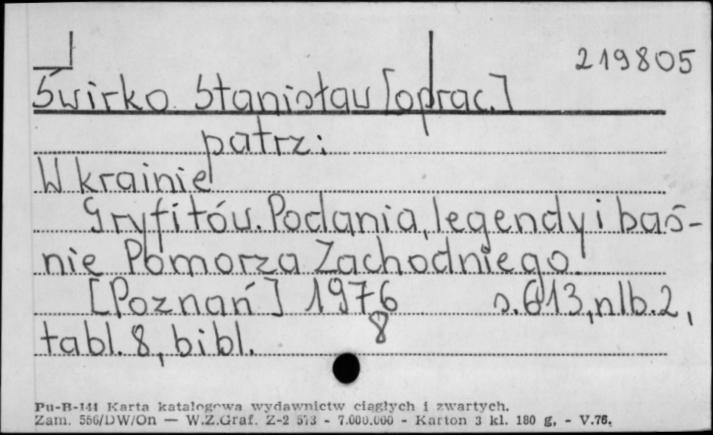 219805
Świrko Stanisław [oprac.]
patrz:
W krainie
Gryfitów. Podania, legendy i baś-
nie Pomorza Zachodniego.
[Poznań] 1976 s. 613, nlb. 2,
tabl. 8, bibl. 8
Pu-B-141 Karta katalogowa wydawnictw ciągłych i zwartych.
Zam. 556/DW/On — W.Z.Graf. Z-2 573 - 7.000.000 - Karton 3 kl. 180 g. - V.76.